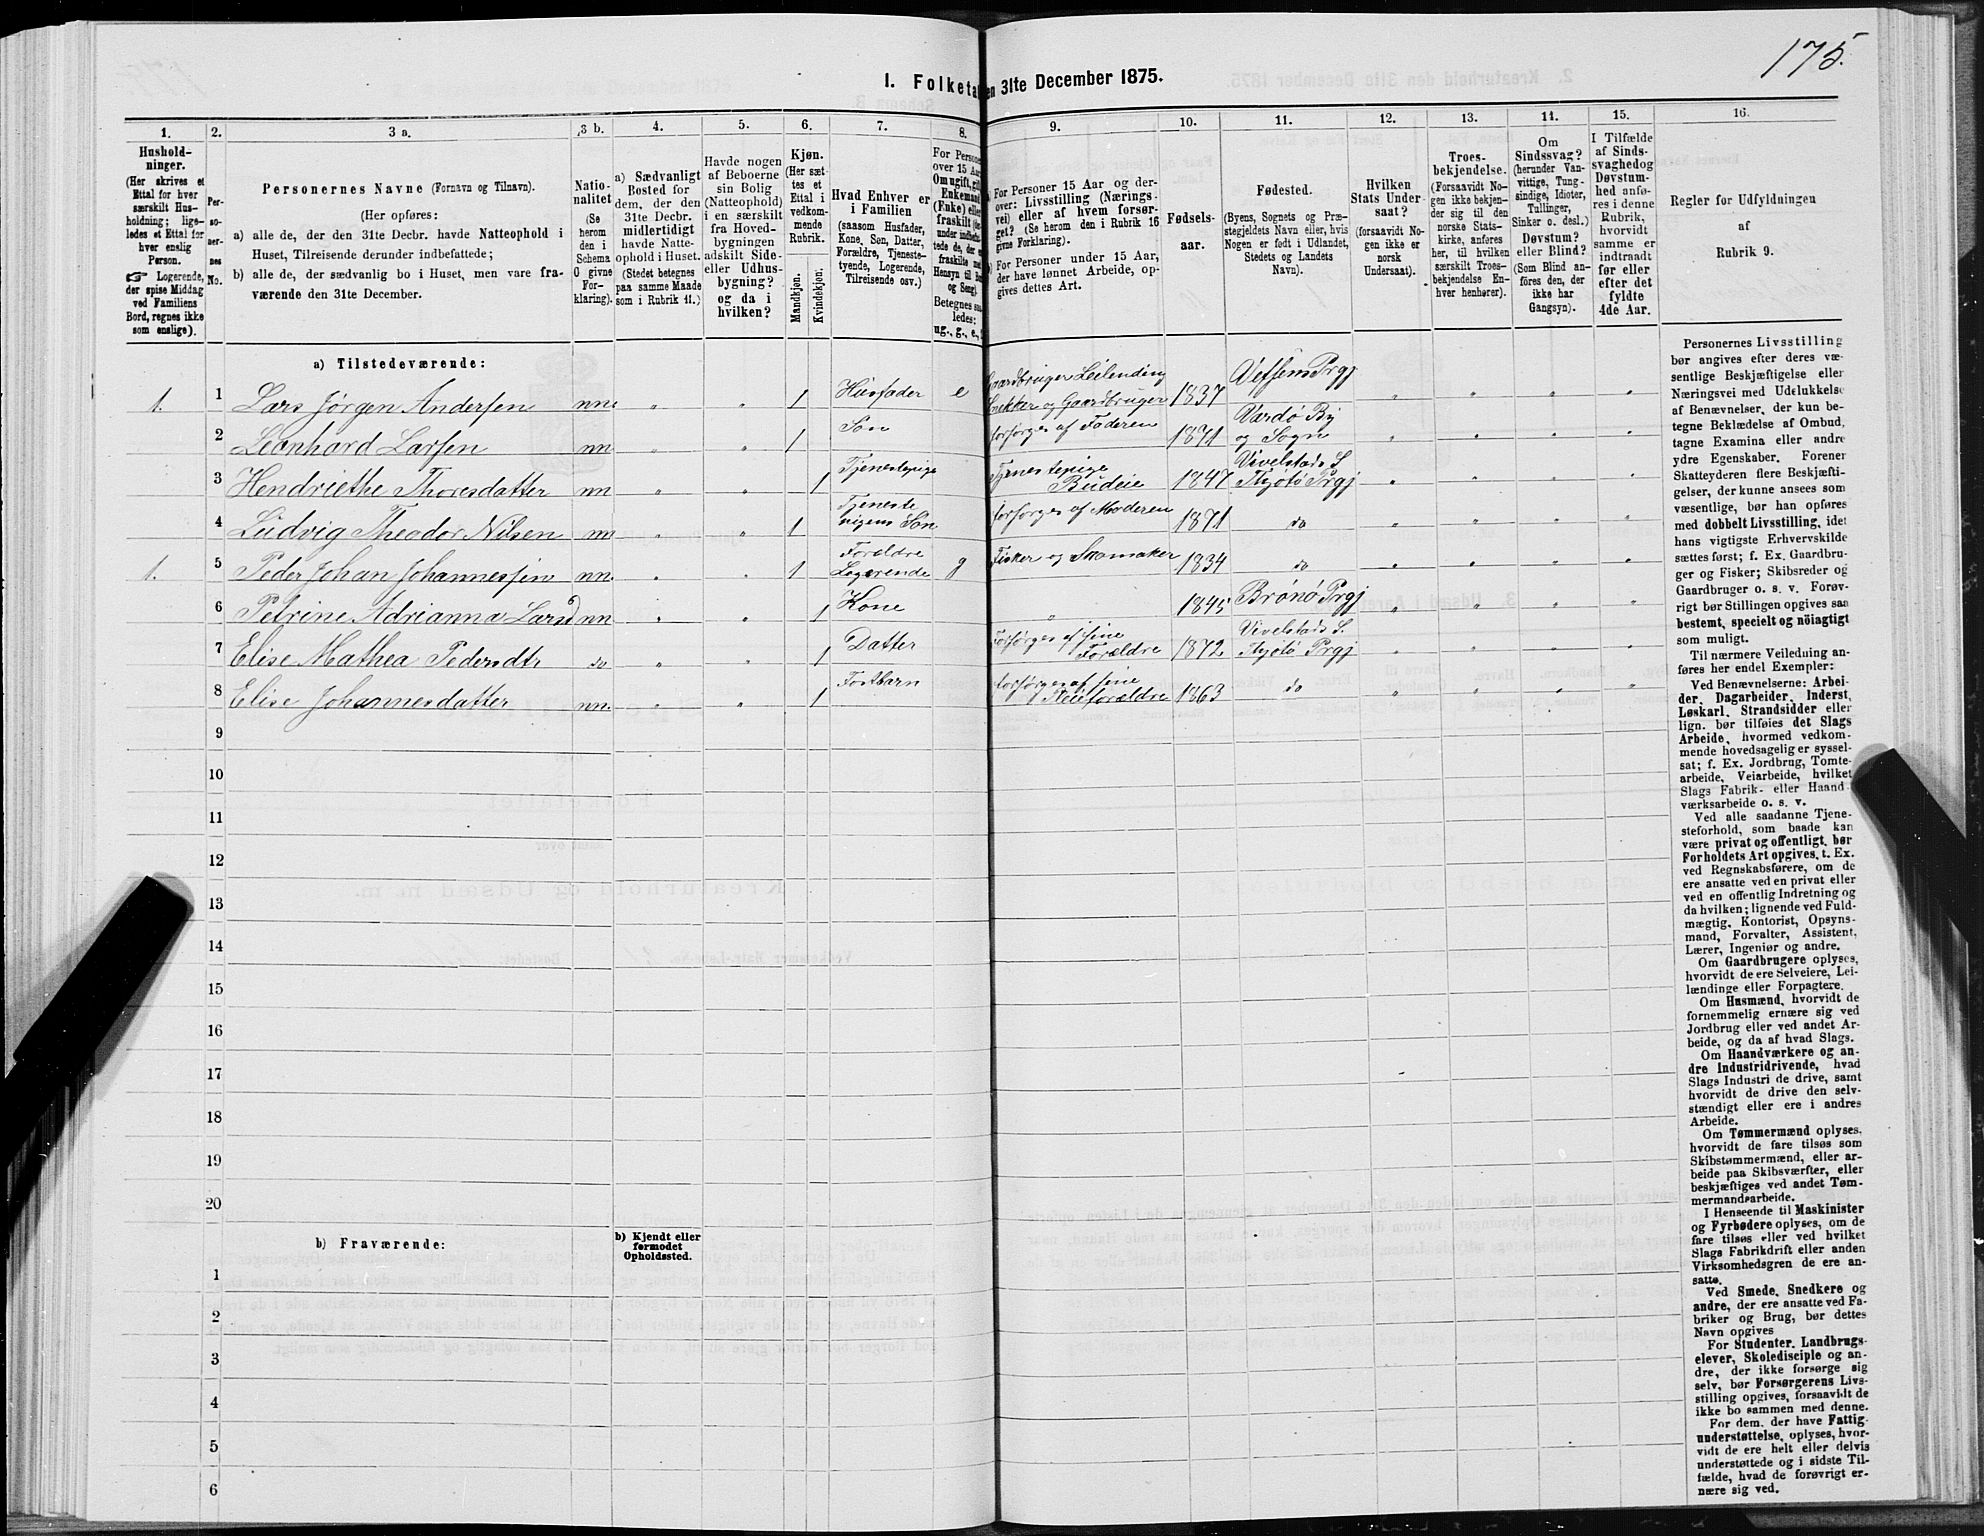 175.
I. Folketal en 31te December 1875.
1. 2. 3 a. 3 b. 4. 5. 6. 7. 8. 9. 10. 11. 12. 13. 14. 15. 16.
Hushold-
ninger.
(Her skrives et
Ettal for hver
særskilt Hus-
holdning; lige-
ledes et Ettal for
hver enslig
Person.
☞ Logerende,
der spise Middag
ved Familiens
Bord, regnes ikke
som enslige).
Per-
so-
ner-
nes
No.
Personernes Navne (Fornavn og Tilnavn).
(Her opføres:
a) alle de, der den 31te Decbr. havde Natteophold i
Huset, Tilreisende derunder indbefattede;
b) alle de, der sædvanlig bo i Huset, men vare fra-
værende den 31te December.
Natio-
nalitet
(Se
herom
den i
Schema
O givne
For-
klaring).
a) Sædvanligt
Bosted for
dem, der den
31te Decbr.
midlertidigt
havde Natte-
ophold i Huset.
(Stedet betegnes
paa samme Maade
som i Rubrik 11.)
Havde nogen
af Beboerne
sin Bolig
(Natteophold)
i en særskilt
fra Hoved-
bygningen
adskilt Side-
eller Udhus-
bygning?
og da i
hvilken?
Kjøn.
(Her sæt-
tes et
Ettal i
vedkom-
mende
Rubrik.
Mandkjøn.
Kvindekjøn.
Hvad Enhver er
i Familien
(saasom Husfader,
Kone, Søn, Datter,
Forældre, Tjeneste-
tyende, Logerende,
Tilreisende osv.)
For Persone
over 15 Aar
Om ugift, gift
Enkemand
(Enke) eller
fraskilt
under indbefat-
tede de, der
fraskilte med
Hensyn til Bo
og Seng).
Betegnes saa-
ledes:
ug., g., e.,
For Personer 15 Aar og der-
over: Livsstilling (Nærings-
vei) eller af hvem forsør-
get? (Se herom den i Rubrik 16
givne Forklaring).
For Personer under 15 Aar,
der have lønnet Arbeide, op-
gives dettes Art.
Fødsels-
aar.
Fødested.
(Byens, Sognets og Præ-
stegjeldets Navn eller, hvis
Nogen er født i Udlandet,
Stedets og Landets
Navn).
Hvilken
Stats Under-
saat?
(forsaavidt No-
gen ikke er
norsk
Undersaat).
Troes-
bekjendelse.
(Forsaavidt No-
gen ikke bekjen-
der sig til den
norske Stats-
kirke, anføres
her, til hvilken
særskilt Troes-
bekjendelse En-
hver henhører).
Om
Sindssvag?
(herunder Van-
vittige, Tung-
sindige, Idioter,
Tullinger,
Sinker o. desl.)
Døvstum?
eller Blind?
(Som Blind an-
føres den, der
ikke har
Gangsyn).
I Tilfælde
af Sinds-
svaghed og
Døvstum-
hed anfø-
res i denne
Rubrik,
hvorvidt
samme er
indtraadt
før eller
efter det
fyldte
4de Aar.
Regler for Udfyldningen
af
Rubrik 9.
a) Tilstedeværende:
1. 1 Lars Jørgen Andersen nn. „ „ 1 Husfader e Gaardbruger Leilending Snekker og Gaardbruger 1837 Vefsens Prgj „ „ „ „
2 Leonhard Larsen nn „ „ 1 Søn forsørges af Faderen 1871 Vardø By og Sogn „ „ „ „
3 Hendriethe Thoresdatter nn „ „ 1 Tjenestepige Tjenestepige Budeie 1847 Vivelstads S. Thjøtø Prgj „ „ „ „
4 Ludvig Theodor Nilsen nn „ „ 1 Tjeneste pigens Søn forsørges af Moderen 1871 do „ „ „ „
1. 5 Peder Johan Johannessen nn. „ „ 1 Forældre Logerende g Fisker og Skomaker 1834 do „ „ „ „
6 Petrine Adrianna Larsd nn „ „ 1 Kone „ 1845 Brønø Prgj „ „ „ „
7 Elise Mathea Pedersdtr do „ „ 1 Datter Forsørges af sine Forældre 1872 Vivelstads S. Thjøtø Prgj „ „ „ „
8 Elise Johannesdatter nn. „ „ 1 Fostbarn forsørges af sine Pleieforældre 1863 do „ „ „ „
9
10
11
12
13
14
15
16
17
18
19
20
b) Fraværende:
b) Kjendt eller
formodet
Opholdssted.
1
2
3
4
5
6
Personernes Livsstilling
bør angives efter deres væ-
sentlige Beskjæftigelse eller
Næringsvei med Udelukkelse
af Benævnelser, der kun be-
tegne Beklædelse af Ombud,
tagne Examina eller andre
ydre Egenskaber. Forener
Skatteyderen flere Beskjæfti-
gelser, der kunne ansees som
væsentlige, bør han opføres
med dobbelt Livsstilling, idet
hans vigtigste Erhvervskilde
sættes først; f. Ex. Gaardbru-
ger og Fisker; Skibsreder og
Gaardbruger o. s. v. Forøv-
rigt bør Stillingen opgives saa
bestemt, specielt og nöiagtigt
som muligt.
Til nærmere Veiledning an-
føres her endel Exempler:
Ved Benævnelserne: Arbei-
der, Dagarbeider, Inderst,
Løskarl, Strandsidder eller
lign. bør tilføies det Slags
Arbeide, hvormed vedkom-
mende hovedsagelig er syssel-
sat; f. Ex. Jordbrug, Tomte-
arbeide, Veiarbeide, hvilket
Slags Fabrik- eller Haand-
værksarbeide o. s. v.
Ved alle saadanne Tjene-
steforhold, som baade kan
være privat og offentligt, bør
Forholdets Art opgives, t. Ex.
ved Regnskabsførere, om de
ere ansatte ved en privat eller
ved en offentlig Indretning og
da hvilken; lignende ved Fuld-
mægtig, Kontorist, Opsyns-
mand, Forvalter, Assistent,
Lærer, Ingeniør og andre.
Om Gaardbrugere oplyses,
hvorvidt de ere Selveiere, Lei-
lændinge eller Forpagtere.
Om Husmænd, hvorvidt de
fornemmelig ernære sig ved
Jordbrug eller ved andet Ar-
beide, og da af hvad Slags.
Om Haandværkere og an-
dre Industridrivende, hvad
Slags Industri de drive, samt
hvorvidt de drive den selv-
stændigt eller ere i andres
Arbeide.
Om Tømmermænd oplyses,
hvorvidt de fare tilsøs som
Skibstømmermænd, eller ar-
beide paa Skibsværfter, eller
beskjæftiges ved andet Tøm-
mermandsarbeide.
I Henseende til Maskinister
og Fyrbødere oplyses, om de
fare tilsøs eller ved hvilket
Slags Fabrikdrift eller anden
Virksomhedsgren de ere an-
satte.
Ved Smede, Snedkere og
andre, der ere ansatte ved Fa-
briker og Brug, bør dettes
Navn opgives
For Studenter, Landbrugs-
elever, Skoledisciple og an-
dre, der ikke forsørge sig
selv, bør Forsørgerens Livs-
stilling opgives, forsaavidt de
ikke bo sammen med denne.
For dem, der have Fattig-
understøttelse, oplyses, hvor-
vidt de ere helt eller delvis
understøttede og i sidste Til-
fælde, hvad de forøvrigt er-
nære sig ved.